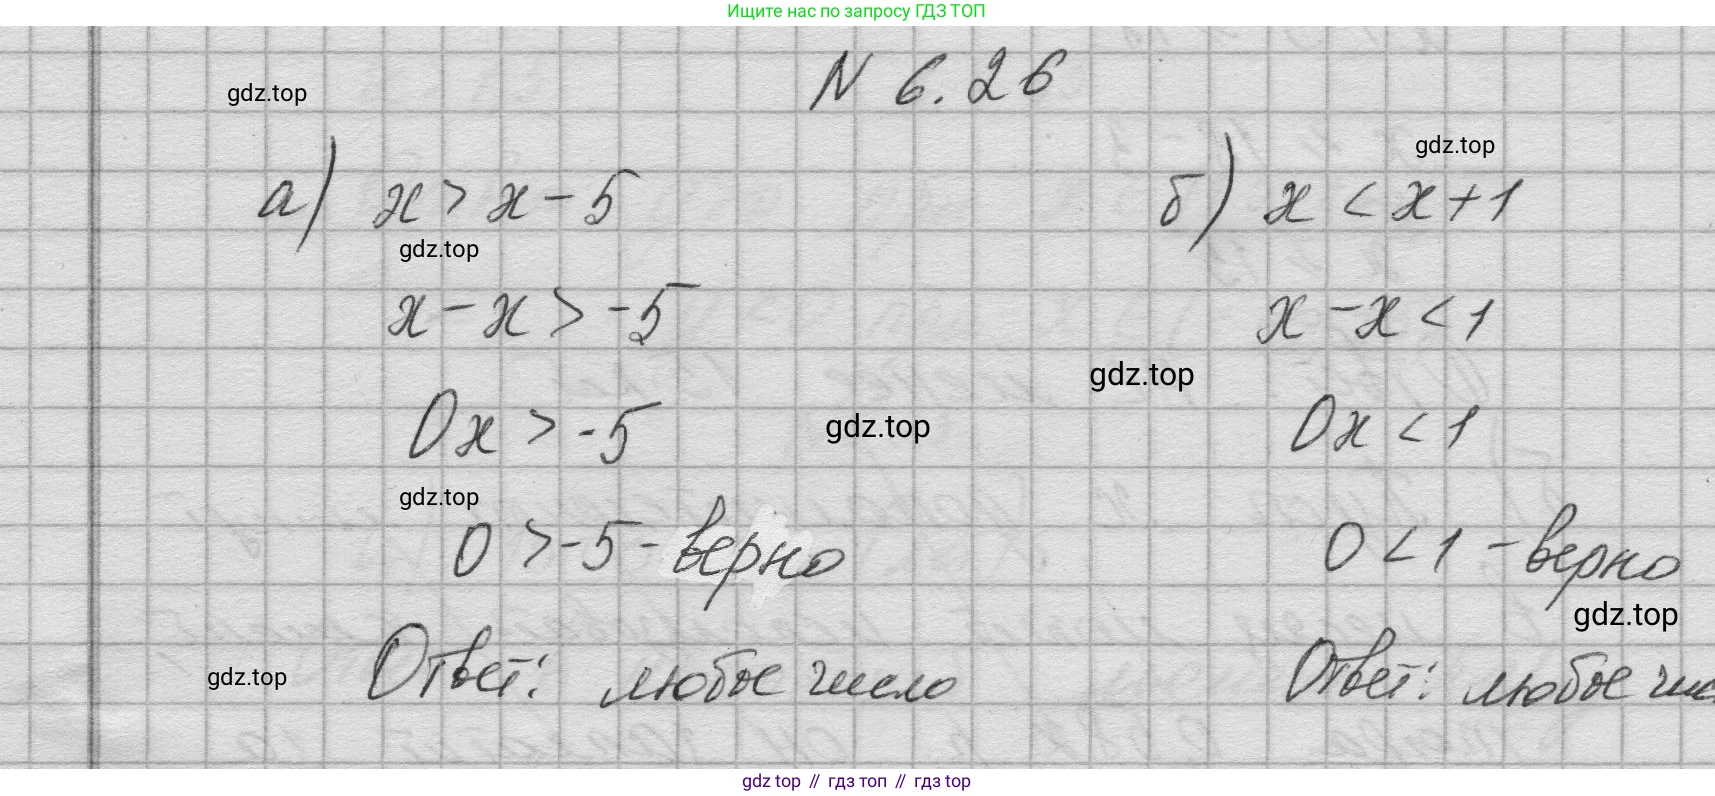 Ищите нас по запросу ГДЗ ТОП
N 6.26
gdz.top
gdz.top
а) x > x - 5
б) x < x + 1
gdz.top
x - x > -5
x - x < 1
gdz.top
0x > -5
gdz.top
0x < 1
gdz.top
0 > -5 - верно
0 < 1 - верно
gdz.top
gdz.top
Ответ: любое число
Ответ: любое чис
gdz top // гдз топ // гдз top